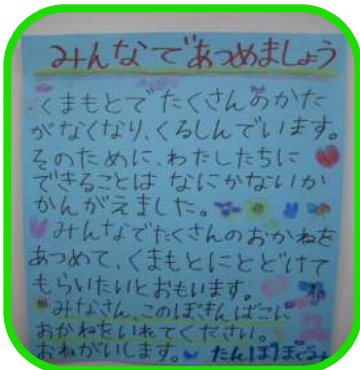 みんなであつめましょう
くまもとでたくさんのかた
がなくなり、くるしんでいます。
そのために、わたしたちに
できることはなにかないか
かんがえました。
みんなでたくさんのおかねを
あつめて、くまもとにとどけて
もらいたいとおもいます。
みなさん、このぼきんばこに
おかねをいれてください。
おねがいします。 たんぽぽぐみ